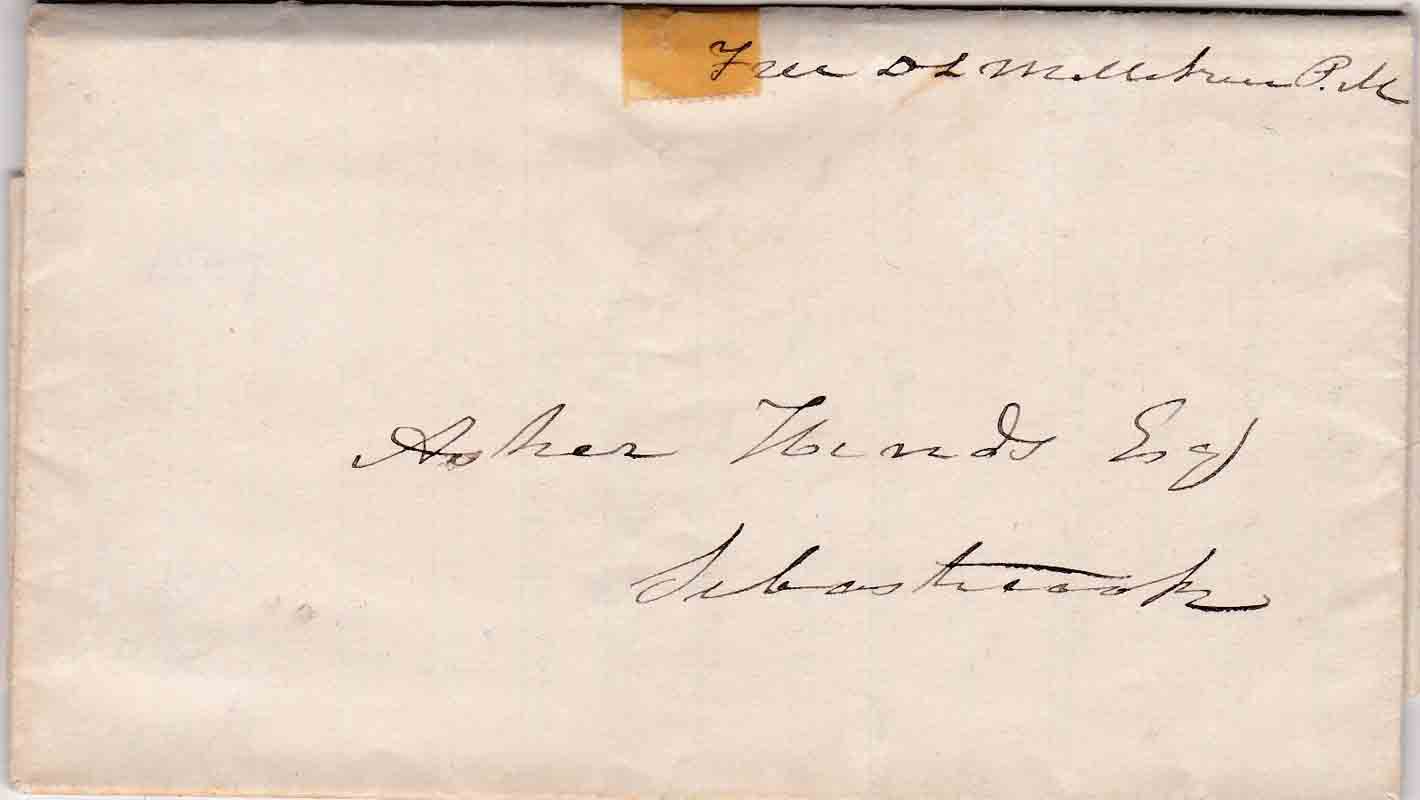 Free D L Milliken P.M
Asher Hinds Esq
Sebasticook